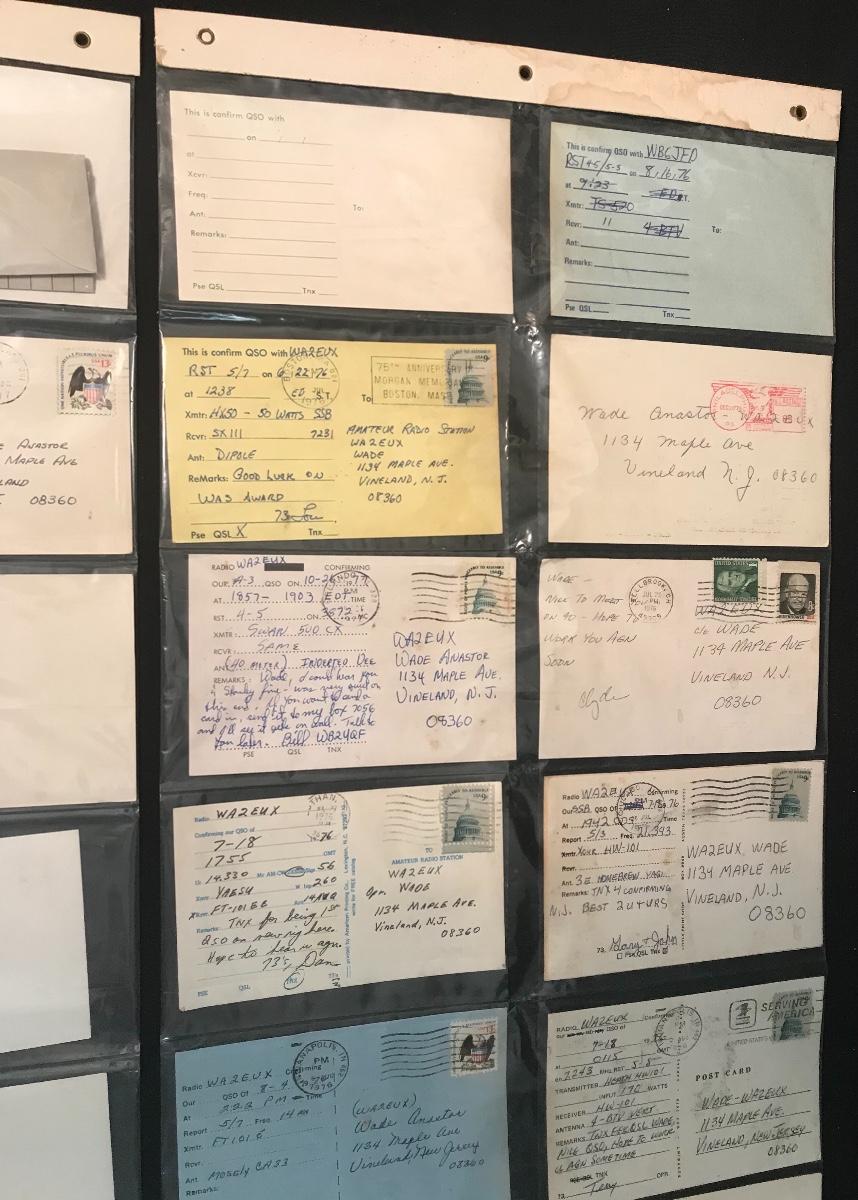 This is confirm QSO with
on / /
at
Xcvr:
Freq:
Ant:
To:
Remarks:
Pse QSL Tnx
This is confirm QSO with WB6JFD
RST 45/5-5 on 8/6/76
at 9:23
Xmtr: TS-520
Rcvr: 11 4-BTV
To:
Ant:
Remarks:
Pse QSL Tnx
USA 13c
ANASTOR
MAPLE AVE
LAND
08360
This is confirm QSO with WA2EUX
RST 5/7 on 6/22/76
at 1238 ED S.T.
To
Xmtr: HX50 - 50 WATTS SSB
Rcvr: SX111 7231
Ant: DIPOLE
ReMarks: GOOD LUCK ON
WAS AWARD
73
Pse QSL X Tnx
75TH ANNIVERSARY
MORGAN MEMORIAL
BOSTON, MASS
AMATEUR RADIO STATION
WA2EUX
WADE
1134 MAPLE AVE.
VINELAND, N.J.
08360
Wade Anastor - WA2EUX
1134 Maple Ave
Vineland N.J. 08360
RADIO WA2EUX CONFIRMING
OUR A-3 QSO ON 10-26
AT 1857- 1903 EDT TIME
RST 4-5 ON 3972
XMTR: SWAN 500 CX
RCVR: SAME
ANT (40 METER) INVERTED VEE
REMARKS: Wade,
you later. Bill WB2YQF
PSE QSL TNX
WA2EUX
WADE ANASTOR
1134 MAPLE AVE.
VINELAND, N.J.
08360
WADE -
NICE TO MEET
ON 40 - HOPE TO
WORK YOU AGN
SOON
Clyde
BELLBROOK, OH
JUL 26
1976
UNITED STATES
EISENHOWER
WA2EUX
c/o WADE
1134 MAPLE AVE
VINELAND N.J.
08360
Radio WA2EUX
Confirming our QSO of
7-18 76
1755 GMT
14.330 56
Xmtr YAESU 260
FT-101EE
Remarks: TNX for being 1st
QSO on new rig here.
Hope to hear u agn.
73's, Dan
PSE QSL TNX
provided by American Printing Co. Lexington, N.C. 27292
write for FREE catalog
TO
AMATEUR RADIO STATION
WA2EUX
Opr. WADE
1134 MAPLE AVE.
Vineland, N.J.
08360
Radio WA2EUX Confirming
Our SSB QSO Of 7-18 76
At 1942 Time
Report 5/3 Freq. 21,393
Xmtr. XCVR HW-101
Rcvr.
Ant. 3 E HOMEBREW YAGI
Remarks: TNX 4 CONFIRMING
N.J. BEST 2 U + URS
73, Gary + John
PSE QSL TNX
WA2EUX, WADE
1134 MAPLE AVE
VINELAND, N.J.
08360
Radio WA2EUX Confirming
Our QSO Of 8-4
At 222 PM Time
Report 5/7 Freq 14
Xmtr. FT101E
Rcvr.
Ant MOSELY CA33
Remarks:
INDIANAPOLIS, IN
PM
1976
(WA2EUX)
Wade Anastor
1134 Maple Ave
Vineland, New Jersey
08360
RADIO WA2EUX Confirming
OUR QSO of
7-18
AT 0115
on 7243 RST 5-8
TRANSMITTER HEATH HW101
INPUT 170 WATTS
RECEIVER HW-101
ANTENNA 4-BTV VERT
REMARKS: TNX FER QSL WADE,
NICE QSO, HOPE TO WORK
U AGN SOMETIME
TNX OPR.
73 Terry
SERVING
AMERICA
POST CARD
WADE-WA2EUX
1134 MAPLE AVE.
VINELAND, NEW JERSEY
08360